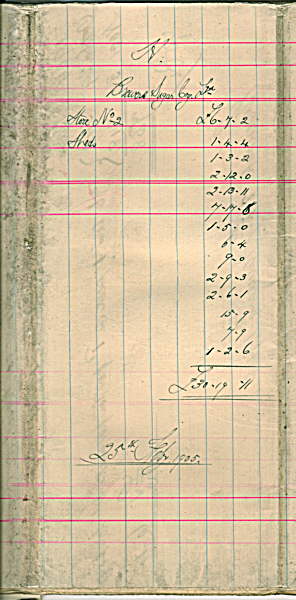 N.
Sugar Coy. Ld
Store No 2 £6-7-2
Sheds 1-4-4
1-3-2
2-12-0
2-13-11
7-17-8
1-5-0
6-4
9-0
2-9-3
2-6-1
15-9
7-9
1-2-6
£30-19-11
25th Feby 1905.